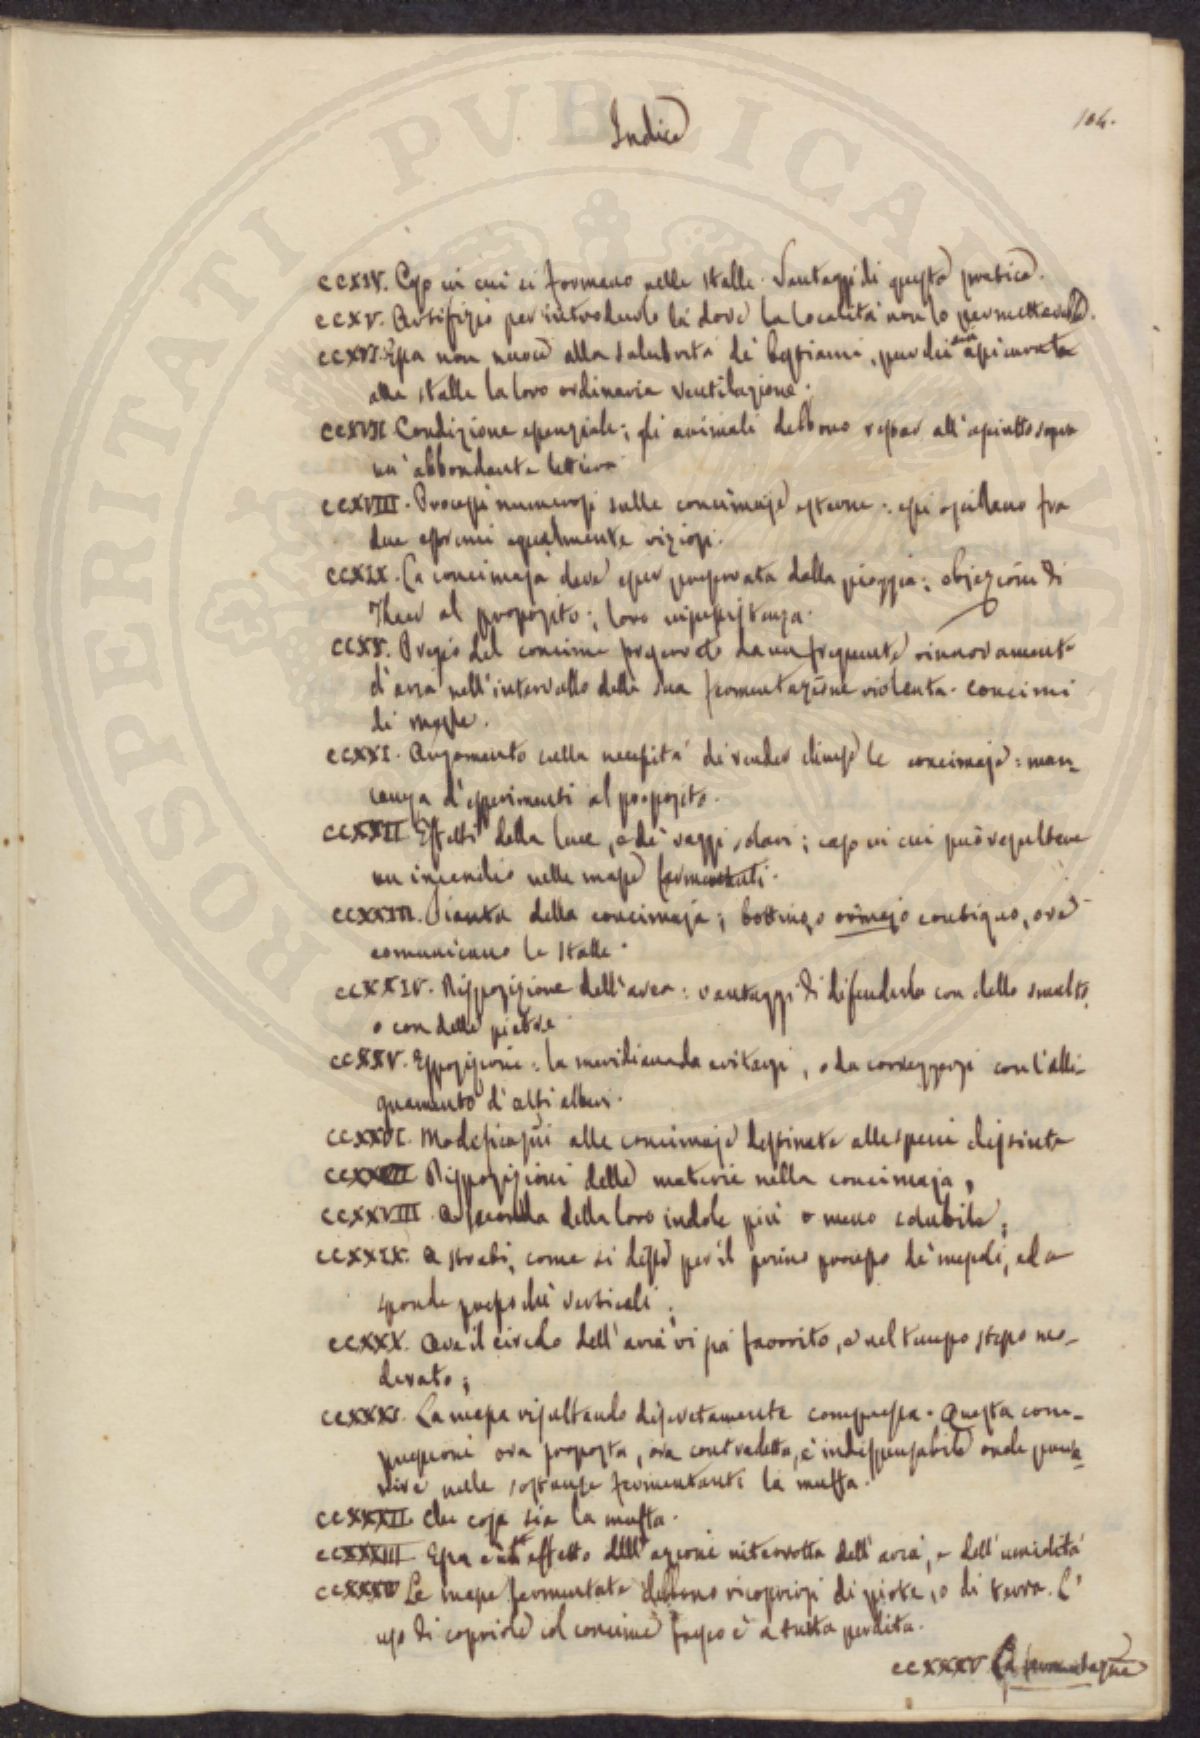 104.
Indice
CCXIV. Caso in cui si formano nelle stalle. Vantaggi di questa pratica.
CCXV. Artifizio per introdurlo là dove la località non lo permetterebbe.
CCXVI. Essa non nuoce alla salubrità de' bestiami, purchè sia assicurata
alle stalle la loro ordinaria ventilazione.
CCXVII. Condizione essenziale; gli animali debbono restar all'asciutto sopra
un'abbondante lettiera
CCXVIII. Processi numerosi sulle concimaje esterne: essi oscillano fra
due estremi egualmente viziosi.
CCXIX. La concimaja deve esser preservata dalla pioggia; objezioni di
Thaer al proposito; loro insussistenza.
CCXX. Pregio del concime preservato da un frequente rinnovamento
d'aria nell'intervallo della sua fermentazione violenta. Concimi
di
CCXXI. Argomento sulla necessità di render chiuse le concimaje: man-
canza d'esperimenti al proposito.
CCXXII. Effetti della luce, e de' raggi solari; caso in cui può resultare
un incendio nelle masse fermentanti.
CCXXIII. Pianta della concimaja; bottino, o orinajo contiguo, ove
comunicano le stalle.
CCXXIV. Disposizione dell'area: vantaggi di difenderla con dello smalto,
o con delle pietre.
CCXXV. Esposizione: la meridiana da evitarsi, o da correggersi con l'alli-
gnamento d'alti alberi.
CCXXVI. Modificazioni alle concimaje destinate alle specie distinte
CCXXVII Disposizioni delle materie nella concimaja,
CCXXVIII. A seconda della loro indole più o meno solubile;
CCXXIX. A strati, come si disse per il primo processo de' mescoli, ed a
sponde pressochè verticali;
CCXXX. Ove il circolo dell'aria vi sia favorito, e nel tempo stesso mo-
derato;
CCXXXI. La massa risultando discretamente compressa. Questa com-
pressione ora proposta, ora contradetta, è indispensabile onde preve-
nire nelle sostanze fermentanti la muffa.
CCXXXII. Che cosa sia la muffa.
CCXXXIII. Essa è un effetto dell'azione interrotta dell'aria, e dell'umidità
CCXXXIV Le masse fermentate debbono ricoprirsi di piote, o di terra. L'
uso di coprirle col concime fresco è a tutta perdita.
CCXXXV. La fermentazione